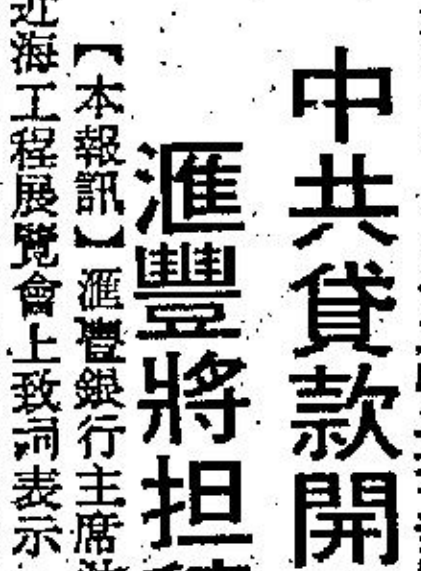 中共貸款開
滙豐將担
【本報訊】滙豐銀行主席
近海工程展覽會上致詞表示